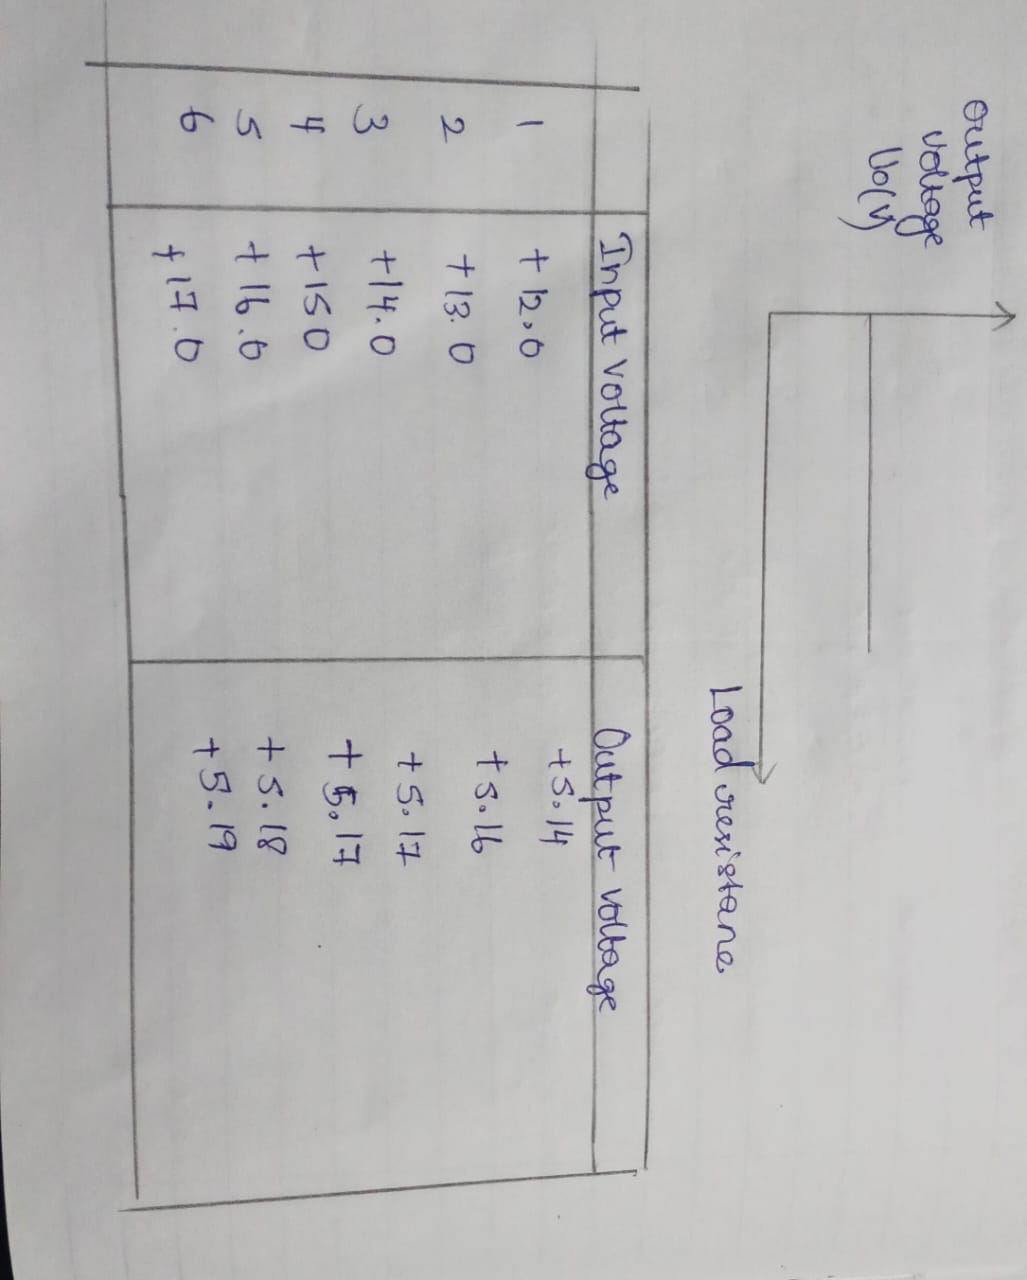 Output
voltage
Vo(v)
Load resistane
Input voltage Output voltage
1 +12.0 +5.14
2 +13.0 +5.16
3 +14.0 +5.17
4 +150 +5.17
5 +16.0 +5.18
6 +17.0 +5.19